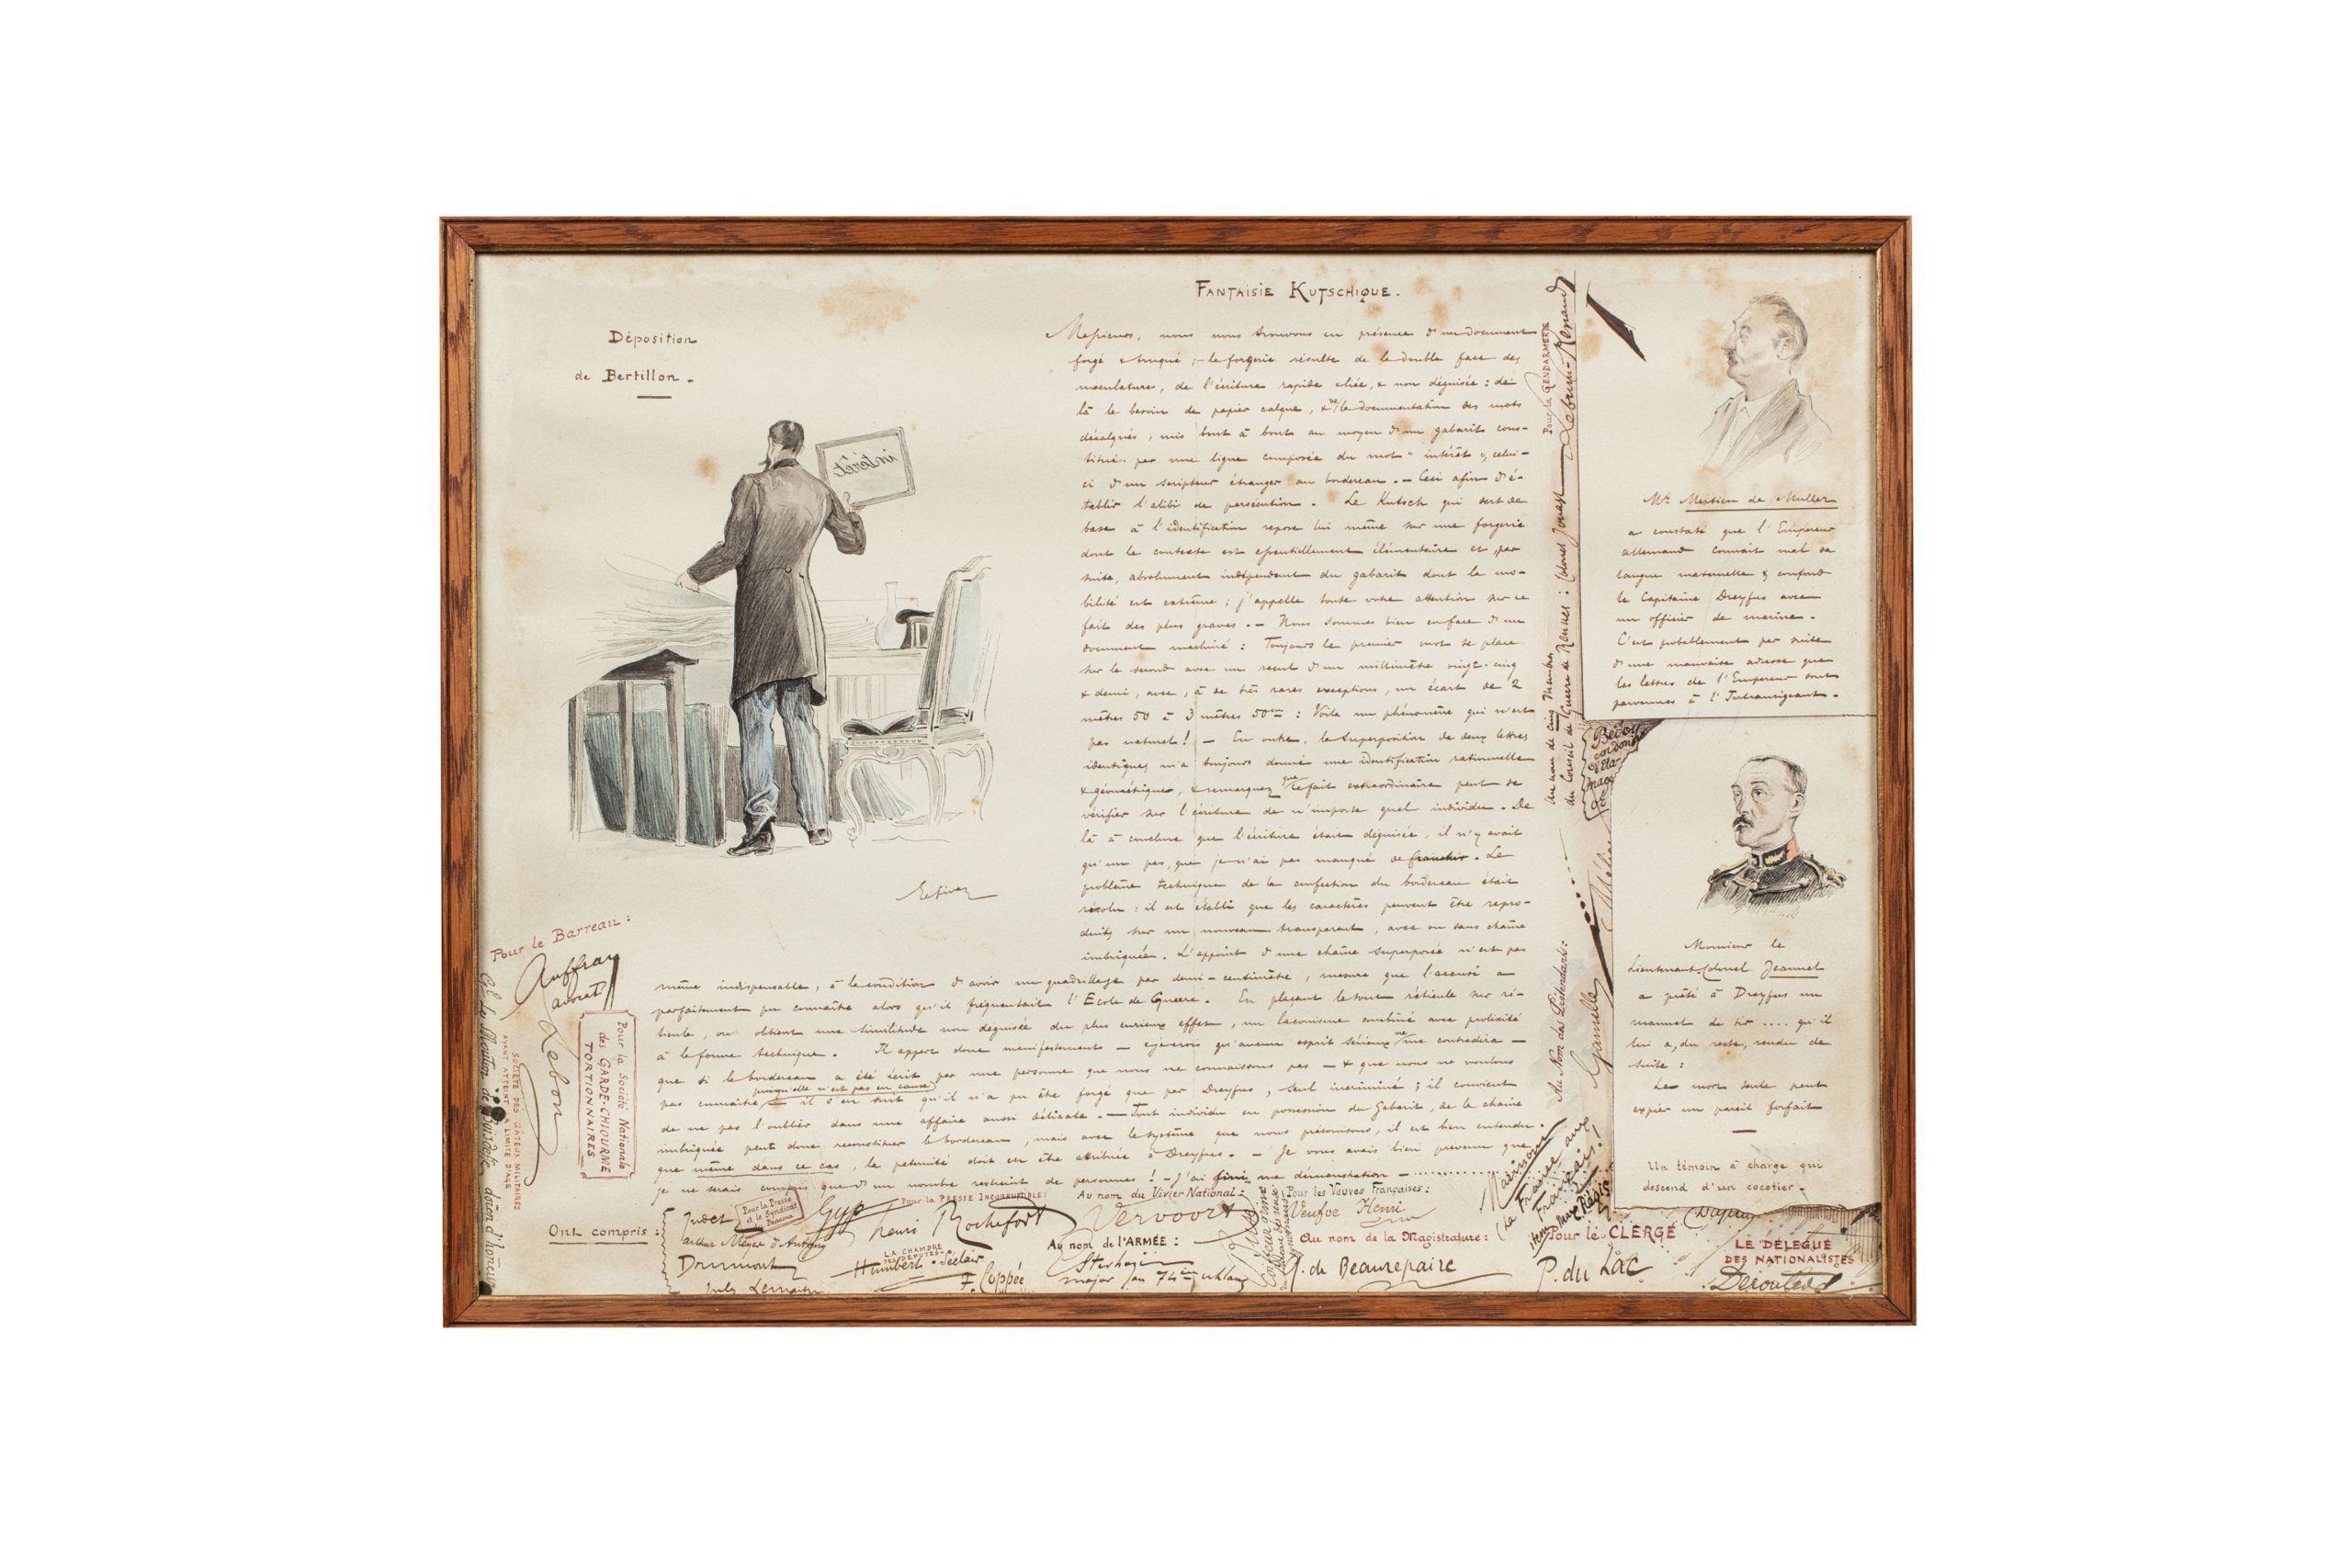 Déposition
de Bertillon.
intérêt
FANTAISIE KUTSCHIQUE.
Messieurs, nous nous trouvons en présence d'un document
forgé & truqué ; la forgerie résulte de la double face des
maculatures, de l'écriture rapide & liée, & non déguisée : de
là le besoin de papier calque, & la documentation des mots
décalqués, mis bout à bout au moyen d'un gabarit cons-
titué par une ligne composée du mot "intérêt", celui-
ci d'un scripteur étranger au bordereau. — Ceci afin d'é-
tablir l'alibi de persécution. Le Kutsch qui sert de
base à l'identification repose lui même sur une forgerie
dont le contexte est essentiellement élémentaire et, par
suite, absolument indépendant du gabarit dont la mo-
bilité est extrême ; j'appelle toute votre attention sur ce
fait des plus graves. — Nous sommes bien en face d'un
document machiné : Toujours le premier mot se place
sur le second avec un recul d'un millimètre vingt-cinq
& demi, avec, à de très rares exceptions, un écart de 2
mètres 50 à 3 mètres 50 : Voilà un phénomène qui n'est
pas naturel ! — En outre, la superposition de deux lettres
identiques m'a toujours donné une identification rationnelle
& géométrique, & remarquez que ce fait extraordinaire peut se
vérifier sur l'écriture de n'importe quel individu. De
là à conclure que l'écriture était déguisée, il n'y avait
qu'un pas, que je n'ai pas manqué de franchir. Le
problème technique de la confection du bordereau était
résolu : il est établi que les caractères peuvent être repro-
duits sur un nouveau transparent, avec ou sans chaîne
imbriquée. L'appoint d'une chaîne superposée n'est pas
même indispensable, à la condition d'avoir un quadrillage par demi-centimètre, mesure que l'accusé a
parfaitement pu connaître alors qu'il fréquentait l'Ecole de Guerre. En plaçant le tout réticule sur ré-
ticule, on obtient une similitude non déguisée du plus curieux effet, un laconisme combiné avec prolixité
à la forme technique. Il appert donc manifestement — & je crois qu'aucun esprit sérieux ne me contredira —
que si le bordereau a été écrit par une personne que nous ne connaissons pas — & que nous ne voulons
pas connaître puisqu'elle n'est pas en cause — il s'en suit qu'il n'a pu être forgé que par Dreyfus, seul incriminé ; il convient
de ne pas l'oublier dans une affaire aussi délicate. — Tout individu en possession du Gabarit, de la chaîne
imbriquée peut donc reconstituer le bordereau, mais avec le système que nous préconisons, il est bien entendu
que même dans ce cas, la paternité doit en être attribuée à Dreyfus. — Je vous avais bien prévenu que
je ne serais compris que d'un nombre restreint de personnes ! — J'ai fini ma démonstration — ..........
Pour la GENDARMERIE
Lebrun-Renaud
Au nom de cinq Membres
du Conseil de Guerre de Rennes : Colonel Jouast
Méline
Au Nom des Prétendants :
Gamelle
Mr. Mertian de Muller
a constaté que l'Empereur
allemand connait mal sa
langue maternelle & confond
le Capitaine Dreyfus avec
un officier de marine.
C'est probablement par suite
d'une mauvaise adresse que
les lettres de l'Empereur sont
parvenues à l'Intransigeant.
Monsieur le
Lieutenant-Colonel Jeannel
a prêté à Dreyfus un
manuel de tir .... qu'il
lui a, du reste, rendu de
suite :
La mort seule peut
expier un pareil forfait
Un témoin à charge qui
descend d'un cocotier.
Pour le Barreau :
Auffray
avocat
Lebon
Pour la Société Nationale
des GARDE-CHIOURME
TORTIONNAIRES
SOCIÉTÉ DES GÂTEUX MILITAIRES
AYANT ATTEINT LA LIMITE D'AGE
Ont compris :
Judet
Pour la Presse
et le Syndicat
Panama
Arthur Meyer d'Antony
Drumont
Jules Lemaitre
Gyp
Pour la PRESSE INCORRUPTIBLE :
Henri Rochefort
LA CHAMBRE
DES DÉPUTÉS
Humbert
F. Coppée
Au nom du Vivier National :
Vervoort
Au nom de l'ARMÉE :
Sterhazy
major au 74e uhlans
Pour les Veuves Françaises :
Veufve Henri
Au nom de la Magistrature :
Q. de Beaurepaire
la France aux
Français !
Max Régis
Pour le CLERGÉ
P. du Lac
Dupuy
LE DÉLÉGUÉ
DES NATIONALISTES
Déroulède